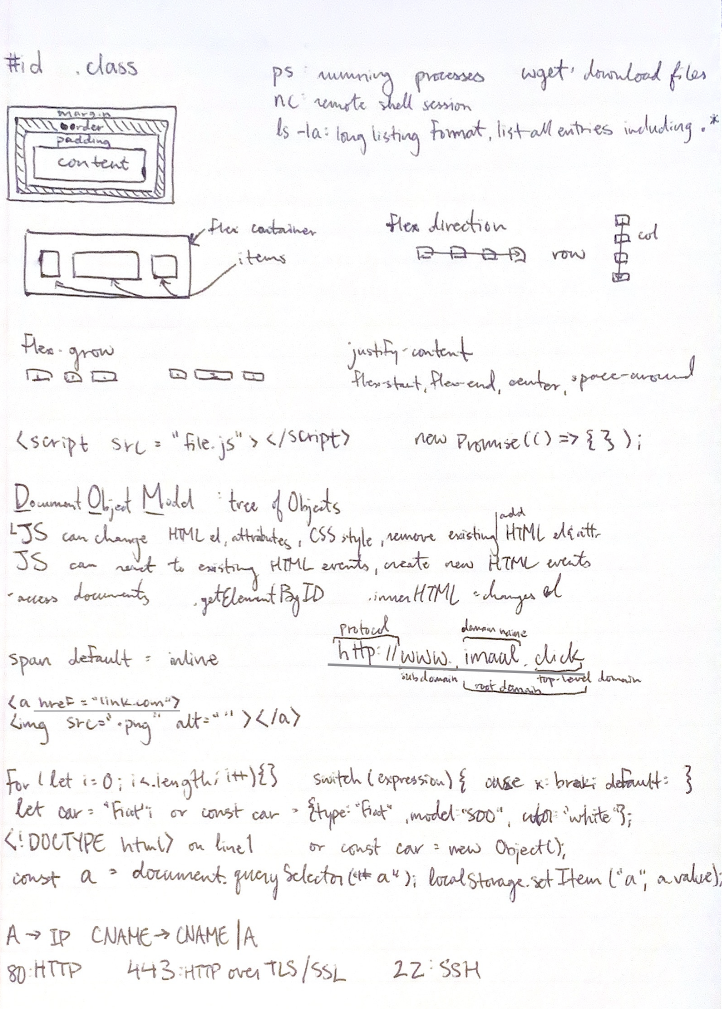 #id .class
ps: running processes wget: download files
nc: remote shell session
ls -la: long listing format, list all entries including .*
margin
border
padding
content
flex container
items
flex direction
row
col
flex-grow
justify-content
flex-start, flex-end, center, space-around
<script src = "file.js"></script> new Promise(() => { });
Document Object Model : tree of Objects
add
JS can change HTML el, attributes, CSS style, remove existing HTML el & attr
JS can react to existing HTML events, create new HTML events
access documents .getElementByID .innerHTML = changes el
protocol domain name
span default = inline http://www.imaal.click
subdomain root domain top-level domain
<a href = "link.com">
<img src=".png" alt=""></a>
for (let i=0; i<.length; i++){} switch (expression) { case x: break; default: }
let car = "Fiat"; or const car = {type: "Fiat", model: "500", color: "white"};
<!DOCTYPE html> on line 1 or const car = new Object();
const a = document.querySelector("#a"); localStorage.setItem("a", a.value);
A → IP CNAME → CNAME | A
80:HTTP 443:HTTP over TLS/SSL 22:SSH